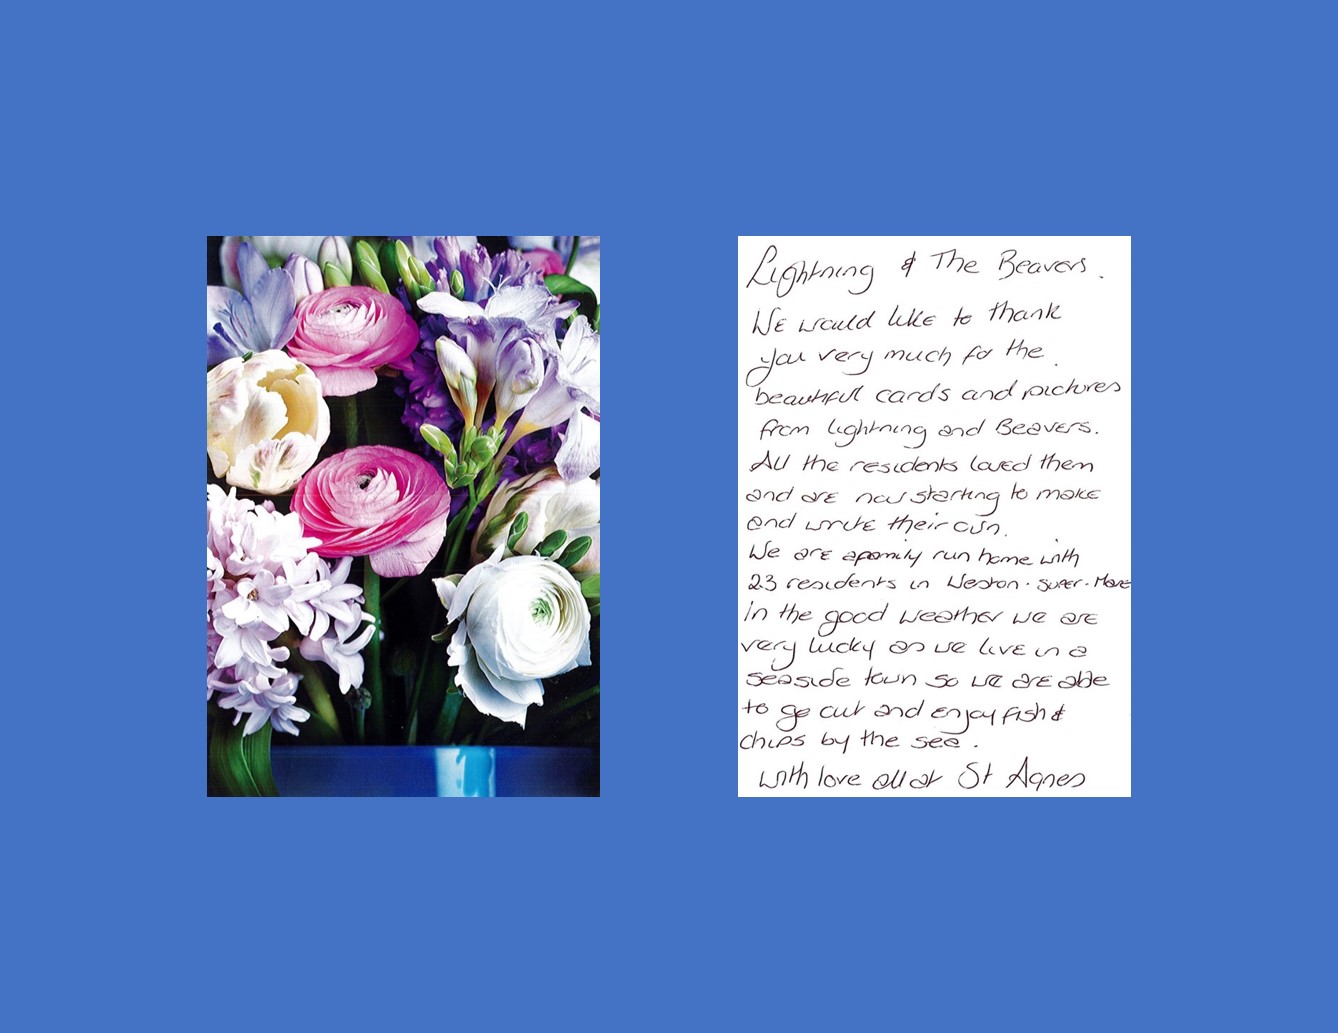 Lightning & The Beavers.
We would like to thank
you very much for the
beautiful cards and pictures
from lightning and Beavers.
All the residents loved them
and are now starting to make
and write their own.
We are a family run home with
23 residents in Weston-super-Mare
in the good weather we are
very lucky as we live in a
seaside town so we are able
to go out and enjoy fish &
chips by the sea.
with love all at St Agnes